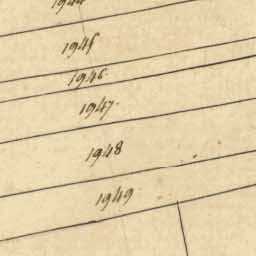 1944
1945
1946.
1947.
1948
1949